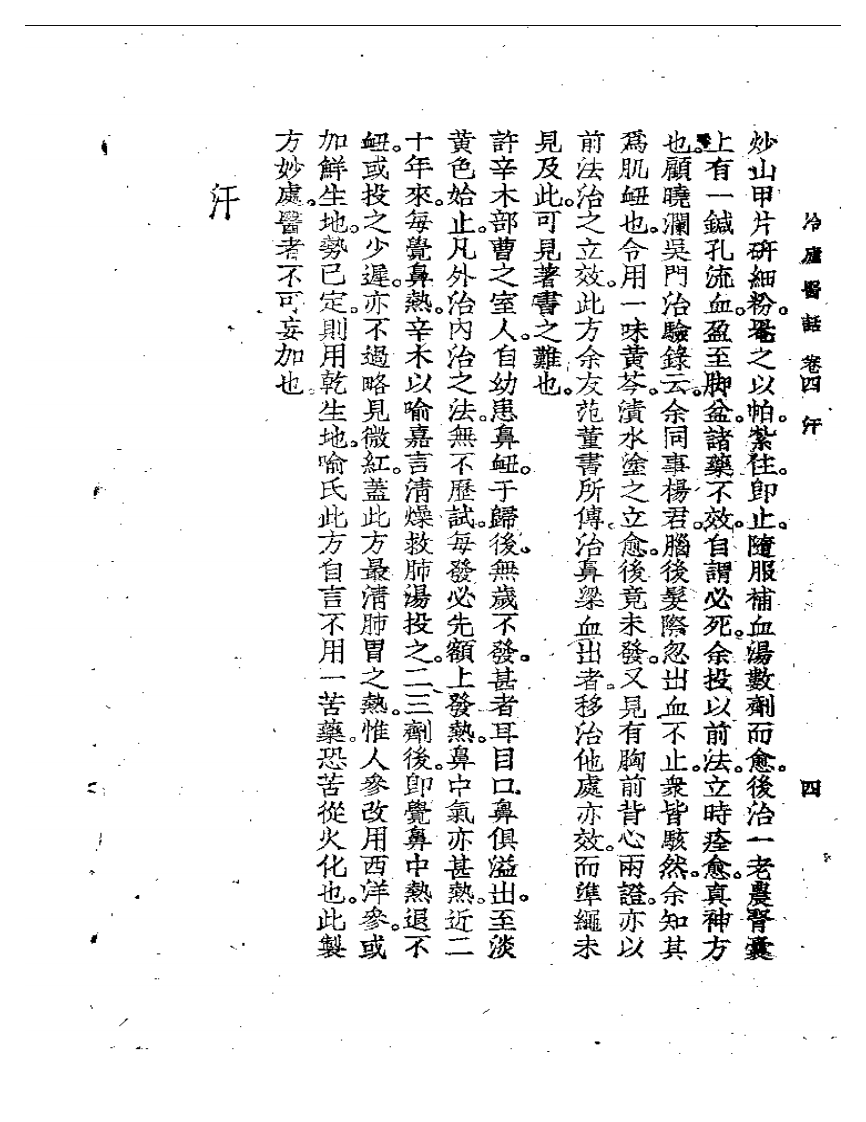 冷廬醫話 卷四 汗 四
炒山甲片硏細粉。罨之以帕。紮住。卽止。隨服補血湯數劑而愈。後治一老農腎囊
上有一鍼孔流血。盈至脚盆。諸藥不效。自謂必死。余投以前法。立時痊愈。真神方
也。顧曉瀾吳門治驗錄云。余同事楊君。腦後髮際忽出血不止。衆皆駭然。余知其
爲肌衄也。令用一味黄芩。漬水塗之立愈。後竟未發。又見有胸前背心兩證。亦以
前法治之立效。此方余友范董書所傳。治鼻梁血出者。移治他處亦效。而準繩未
見及此。可見著書之難也。
許辛木部曹之室人。自幼患鼻衄。于歸後。無歲不發。甚者耳目口鼻俱溢出。至淡
黄色始止。凡外治內治之法。無不歷試。每發必先額上發熱。鼻中氣亦甚熱。近二
十年來。每覺鼻熱。辛木以喻嘉言清燥救肺湯投之。二三劑後。卽覺鼻中熱退不
衄。或投之少遲。亦不過略見微紅。蓋此方最淸肺胃之熱。惟人參改用西洋參。或
加鮮生地。勢已定。則用乾生地。喻氏此方自言不用一苦藥。恐苦從火化也。此製
方妙處。醫者不可妄加也。
汗